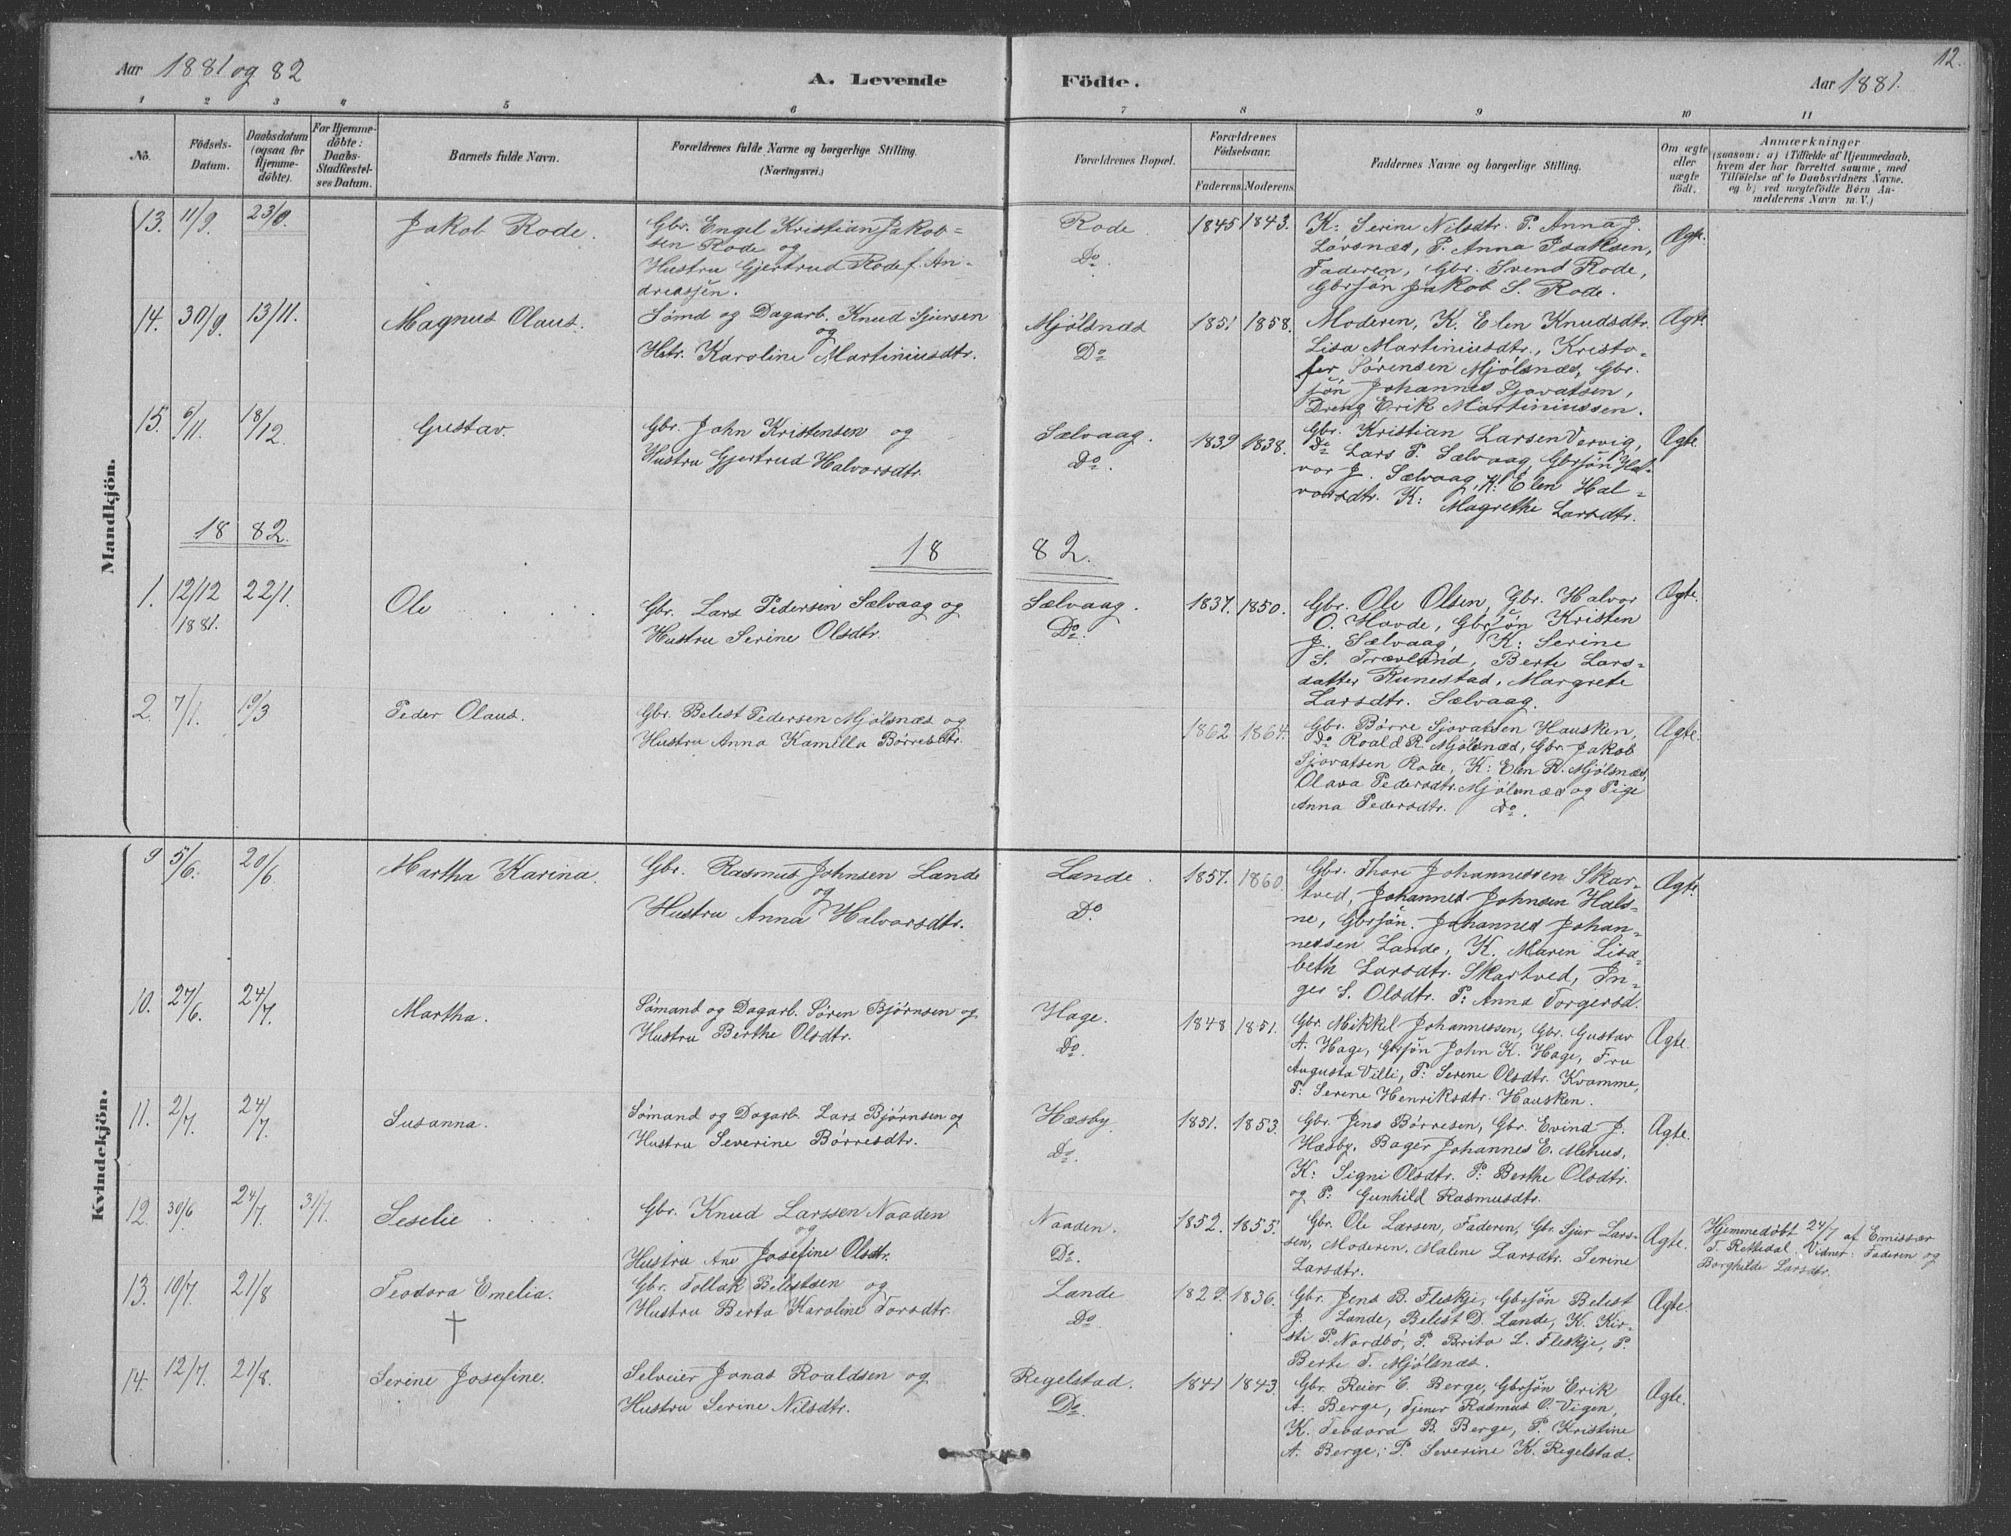 Aar 1881 og 82
A. Levende Födte.
Aar 1881.
12.
1 2 3 4 5 6 7 8 9 10 11
No.
Födsels-Datum.
Daabsdatum (ogsaa for Hjemme-döbte).
For Hjemme-döbte: Daabs-Stadfæstel-ses Datum.
Barnets fulde Navn.
Forældrenes fulde Navne og borgerlige Stilling.
(Næringsvei.)
Forældrenes Bopæl.
Forældrenes Födselsaar.
Faderens. Moderens.
Faddernes Navne og borgerlige Stilling.
Om ægte eller uægte födt.
Anmærkninger
(saasom: a) i Tilfælde af Hjemmedaab, hvem der har forrettet samme, med Tilföielse af to Daabsvidners Navne. og b) ved uægtefödte Börn An-melderens Navn m. V.)
Mandkjön.
13. 11/9. 23/9. Jakob Rode.
Gbr. Engel Kristian Jakob=
sen Rode og
Hustru Gjertrud Rode f. An-
dreassen.
Rode.
Do.
1845 1843.
K: Serine Nilsdtr. P. Anna J.
Lovsnæs, P. Anna Isaksen,
Faderen, Gbr. Svend Rode,
Gbrsøn Jakob S. Rode.
Ægte.
14. 30/9. 13/11. Magnus Olaus.
Sømd og Dagarb. Knud Sjursen
og
Hstr. Karoline Martiniusdtr.
Mjølsnæs
Do
1851 1858.
Moderen, K. Elen Knudsdtr.
Lisa Martiniusdtr., Kristo-
fer Sørensen Mjølsnæs, Gbr.
søn Johannes Sjovatsen,
Dreng Erik Martiniussen.
Ægte.
15. 6/11. 18/12 Gustav.
Gbr. John Kristensen og
Hustru Gjertrud Halvorsdtr.
Sælvaag.
Do.
1839 1838.
Gbr. Kristian Larsen Vervig,
Do Lars P. Sælvaag, Gbrsøn Hal-
vor J. Sælvaag, K: Elen Hal-
vorsdtr. K: Magrethe Larsdtr.
Ægte
18 82.
18 82.
1. 12/12 1881. 22/1. Ole
Gbr. Lars Pedersen Sælvaag og
Hustru Serine Olsdtr.
Sælvaag.
Do.
1837. 1850.
Gbr. Ole Olsen, Gbr. Halvor
O. Hovde, Gbrsøn Kristen
J. Sælvaag, K: Serine
S. Trævland, Berte Lars-
datter Runestad, Margrete
Larsdtr. Sælvaag.
Ægte.
2. 7/1. 19/3 Peder Olaus.
Gbr. Belest Pedersen Mjølsnæs og
Hustru Anna Kamilla Børresdtr.
1862 1864.
Gbr. Børre Sjovatsen Hausken,
Do Roald R. Mjølsnæs, Gbr. Jakob
Sjovatsen Rode, K: Elen R. Mjølsnæs,
Olava Pedersdtr. Mjølsnæs og Pige
Anna Pedersdtr. Do.
Ægte.
Kvindekjön.
9 5/6. 20/6 Martha Karina.
Gbr. Rasmus Johnsen Lande
og
Hustru Anna Halvorsdtr.
Lande.
Do
1857. 1860
Gbr. Thore Johannessen Skar-
tved, Johannes Johnsen Hals-
ne, Gbrsøn. Johannes Johan-
nessen Lande, K. Maren Lisa-
beth Larsdtr. Skartved, In-
ger S. Olsdtr. P: Anna Torgersd.
Ægte.
10. 27/6. 24/7. Martha.
Sømand og Dagarb. Søren Bjørnsen og
Hustru Berthe Olsdtr.
Hage.
Do.
1848 1851.
Gbr. Mikkel Johannessen, Gbr. Gustav
A. Hage, Gbrsøn John K. Hage, Fru
Augusta Villi, P: Serene Olsdtr. Kvamme,
P: Serene Henriksdtr. Hausken.
Ægte.
11. 2/7. 24/7. Susanna.
Sømand og Dagarb. Lars Bjørnsen og
Hustru Severine Børresdtr.
Hæsby.
Do.
1851. 1853.
Gbr. Jens Børresen, Gbr. Evind J.
Hæsby. Bager Johannes E. Mehus,
K: Signi Olsdtr. P: Berthe Olsdtr.
og P: Gunhild Rasmusdtr.
Ægte.
12. 30/6 24/7. 31/7. Seselie
Gbr. Knud Larssen Naaden
og
Hustru Ane Josefine Olsdtr.
Naaden.
Do.
1852. 1855.
Gbr. Ole Larsen, Faderen, Gbr Sjur Lars-
sen, Moderen. Malene Larsdtr. Serine
Larsdtr.
Ægte.
Hjemmedøbt 24/7 af Emissær
T. Rettedal. Vidner: Faderen og
Borghilde Larsdtr.
13. 10/7. 21/8 Teodora Emelia.
†
Gbr. Tollak Belestsen og
Hustru Berta Karoline Torsdtr.
Lande
Do.
1829. 1836.
Gbr. Jens B. Fleskje, Gbrsøn Belest
J. Lande, Belest D. Lande, K. Kir-
sti P. Nordbø, P. Brita L. Fleskje, P.
Berte T. Mjølsnæs.
Ægte
14. 12/7. 21/8. Serene Josefine.
Selveier Jonas Roaldsen og
Hustru Serine Nilsdtr.
Regelstad.
Do.
1841 1843
Gbr. Reier E. Berge, Gbrsøn Erik
A. Berge, Tjener Rasmus O. Vigen,
K. Teodora B. Berge, P. Kristine
A. Berge; P. Severine K. Regelstad.
Ægte.